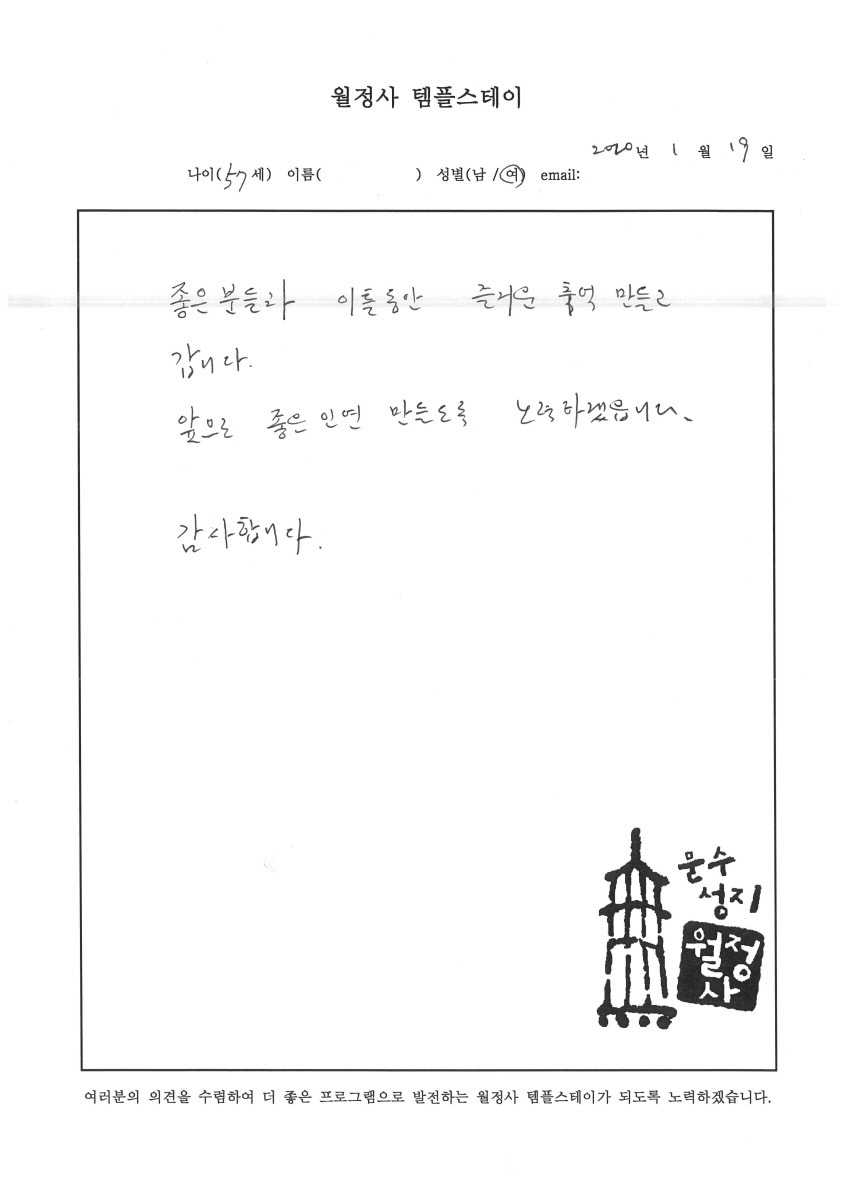 월정사 템플스테이
2020년 1 월 19 일
나이(57세) 이름( ) 성별(남 /여) email:
좋은 분들과 이틀동안 즐거운 추억 만들고
갑니다.
앞으로 좋은 인연 만들도록 노력하겠읍니다.
감사합니다.
문수
성지
월정
사
여러분의 의견을 수렴하여 더 좋은 프로그램으로 발전하는 월정사 템플스테이가 되도록 노력하겠습니다.